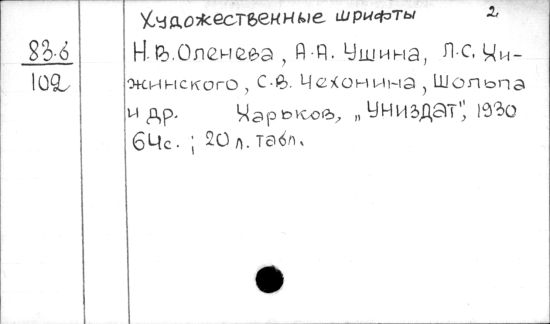 Художественные шрифты 2.
83.6
102
Н.В.Оленева, А.А. Ушина, Л.С. Хи-
жинского, С.В. Чехонина, Шольпа
и др. Харьков, „Униздат", 1930
64с. ; 20 л. табл.